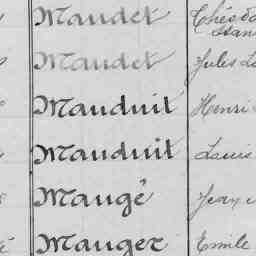 Maudet
Maudet Jules
Mauduit Henri
Mauduit Louis
Maugé Jean
Mauger Emile